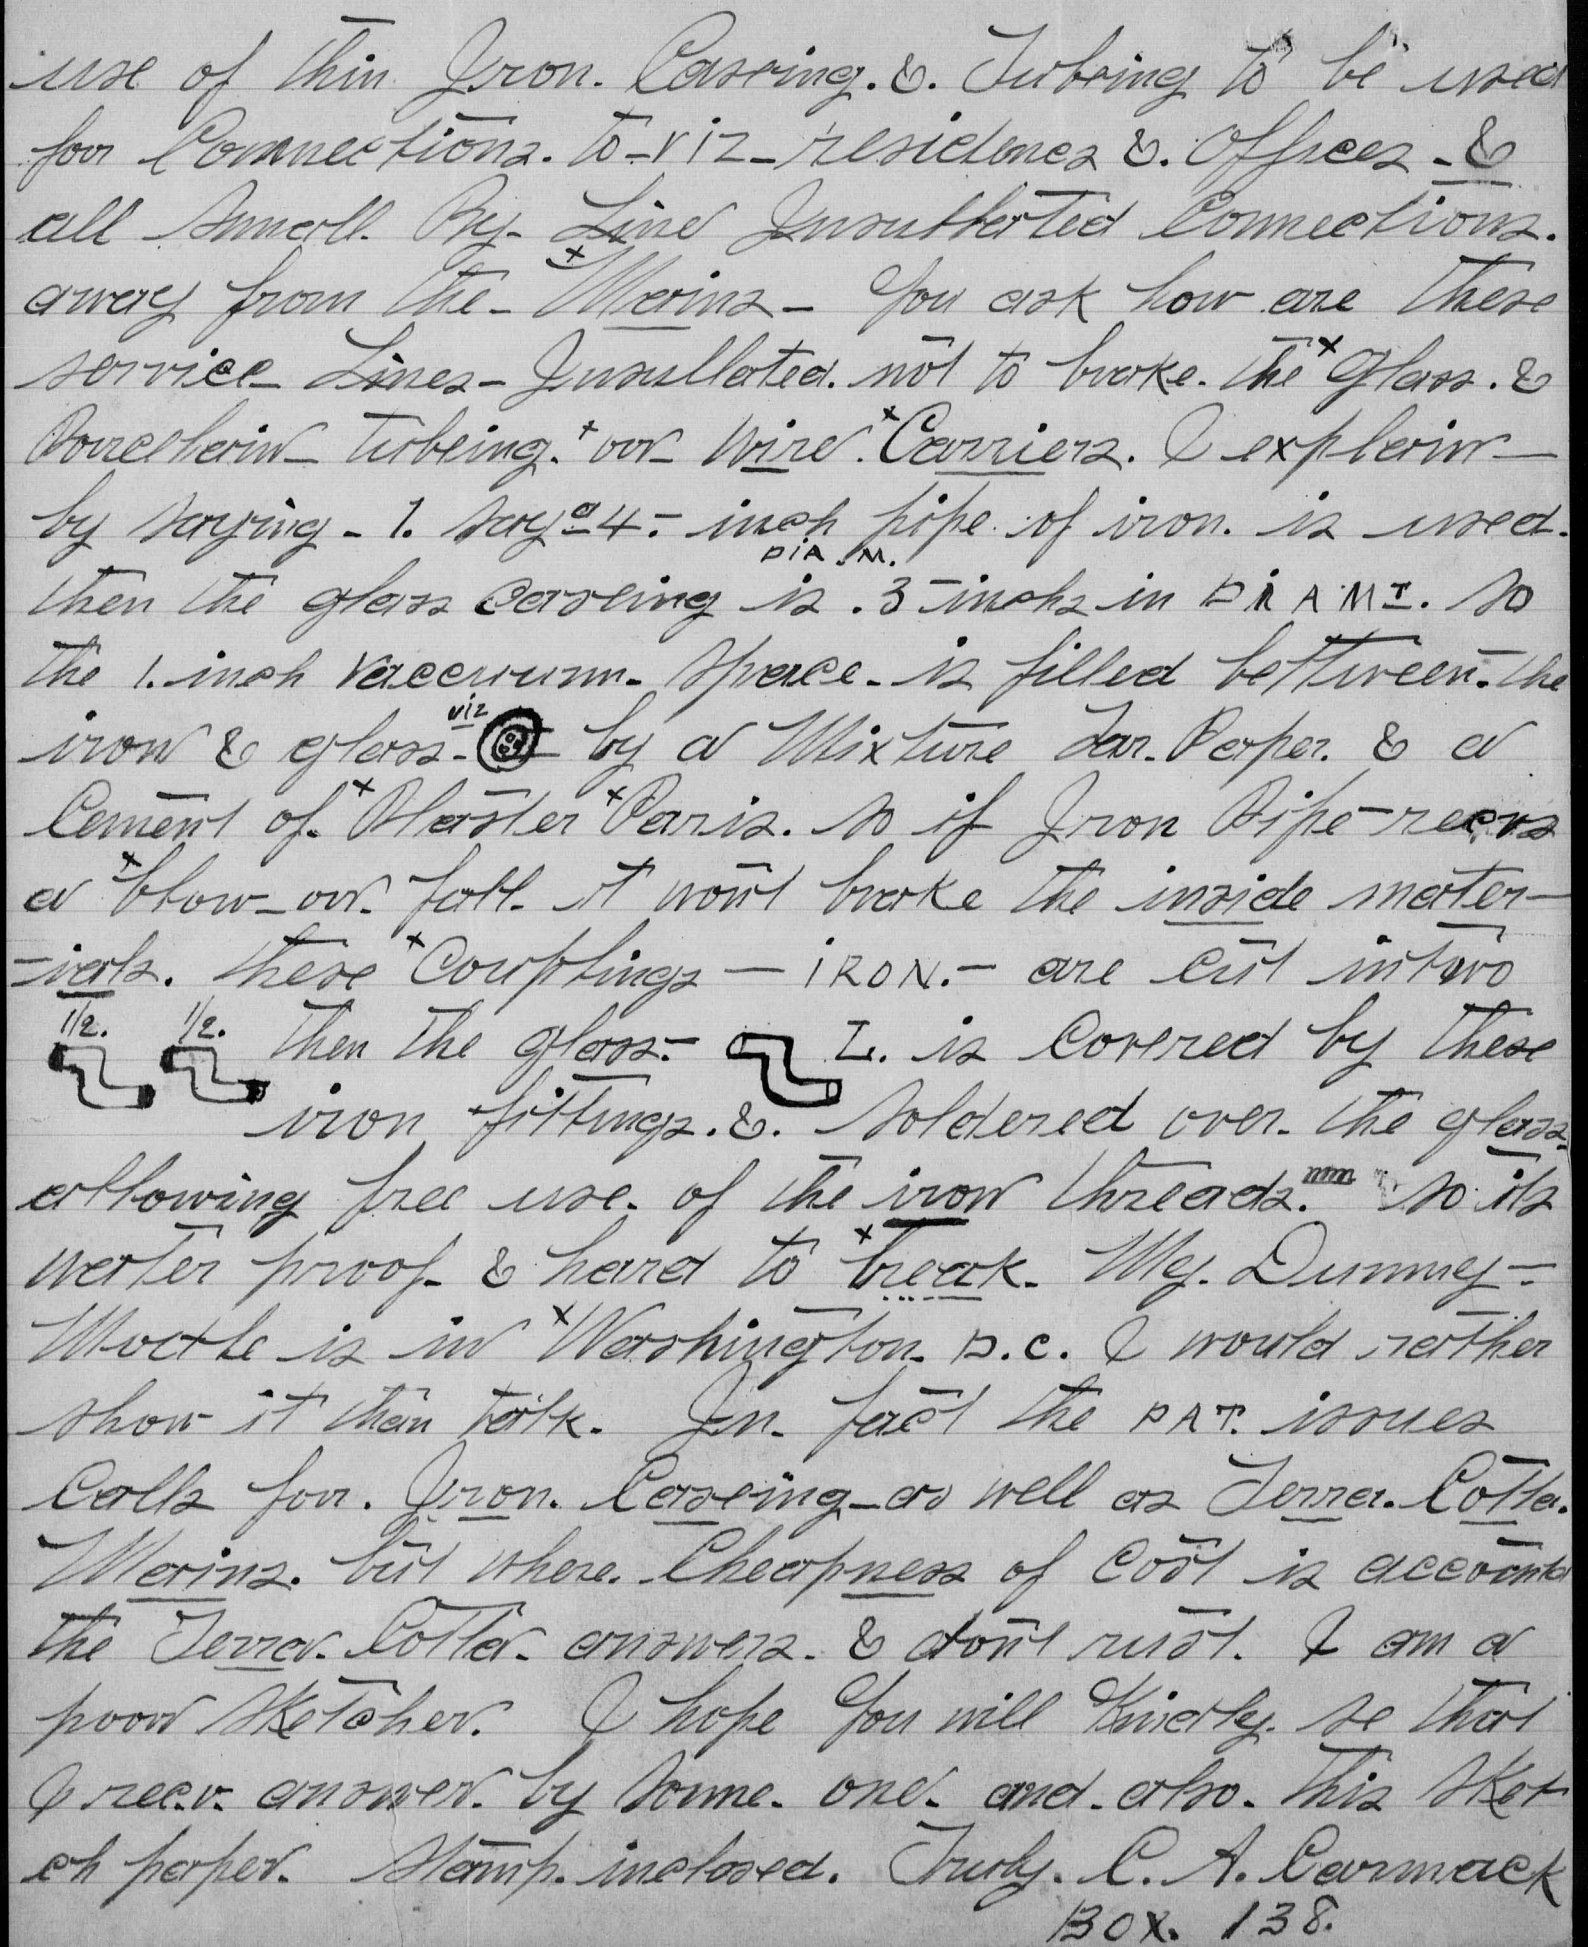 use of thin Iron. Caseing. &. Tubeing to be used
for Connections. to - viz - residences &. Offices - &
all small. By - Line Insullated Connections.
away from the - Mains - You ask how are these
service Lines - Insullated. not to brake. the x Glass. &
Porcellain - tubeing. x or - Wire. x Carriers. I explain -
by saying - 1. say a 4 - inch pipe of iron. is used.
DIA.M.
then the glass caseing is .3 - inchs in DIAMT. so
the 1. inch vaccuumn - space - is filled between. the
viz
iron & glass - by a Mixture Tar. Paper. & a
Cement of. x Plaster x Paris. so if Iron Pipe - recvs
a x blow - or. fall. it wont brake the inside mater -
- ials. these x Coupplings - IRON. - are cut in two
1/2. 1/2. then the glass. - L. is Covered by these
iron fittings. &. soldered over. the glass.
allowing free use. of the iron threads. so its
water proof - & hard to x break. My. Dummy -
Modle is in x Washington. D.C. I would rather
show it than talk. In. fact the PAT. issues
Calls for. Iron. Caseing - as well as Terra. Cotta.
Mains. but where. Cheapness of Cost is accounted
the Terra. Cotta. answers. & dont rust. I am a
poor sketcher. I hope You will Kindly. se that
I recv. answer. by some. one. and. also. this sket
ch paper. Stamp. inclosed. Truly. C. A. Carmack
BOX. 138.